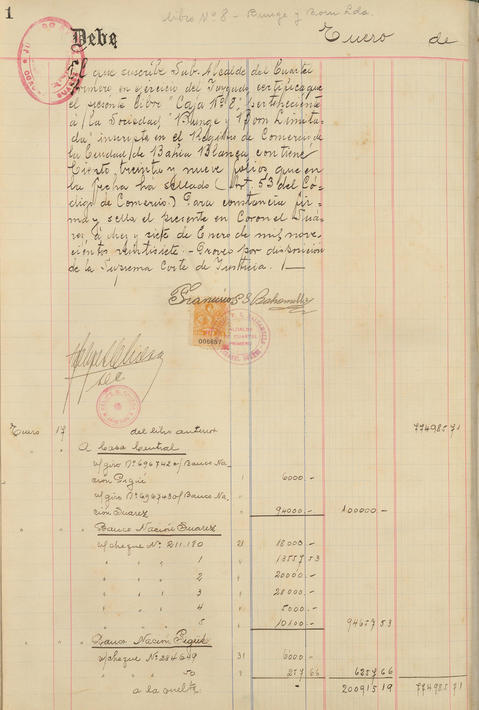 1
Libro Nº 8 - Bunge y Born Lda.
Debe
Enero de
El que suscribe Sub. Alcalde del Cuartel
Primero en ejercicio del Juzgado, certifica que
el presente libro "Caja Nº 8" perteneciente
a la Sociedad "Bunge y Born Limita-
da" inscripta en el Registro de Comercio de
la Ciudad de Bahia Blanca, contiene
Ciento treinta y nueve folios que en
la fecha ha sellado (Art. 53 del Có-
digo de Comercio.) Para constancia fir-
ma y sella el presente en Coronel Sua-
rez, á diez y siete de Enero de mil nove-
cientos veintisiete. - Proveo por disposición
de la Suprema Corte de Justicia.
Francisco S.
006657
ALCALDE
CUARTEL
PRIMERO
Sec
Enero 17 del libro anterior 77498571
A Casa Central
s/giro Nº 696742 o/Banco Na-
ción Pigüé 1 6000.-
s/giro Nº 696743 o/Banco Na-
ción Suarez " 94000.- 100000.-
" " Banco Nación Suarez
s/cheque Nº 211.190 21 18000.-
" " " 1 " 13557 53
" " " 2 " 20000.-
" " " 3 " 28000.-
" " " 4 " 5000.-
" " " 5 " 10100.- 94657 53
" " Banco Nación Pigüé
s/cheque Nº 284649 31 6000.-
" " " 50 " 257 66 6257 66
a la vuelta 200915 19 774985 71